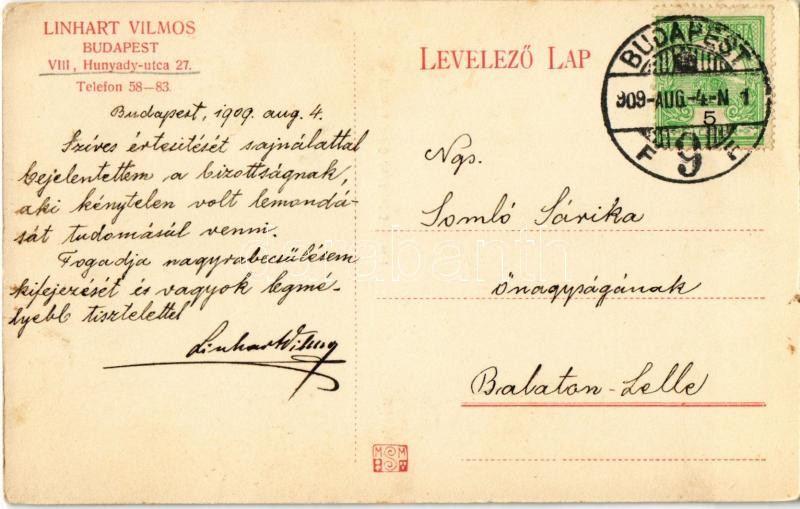 LINHART VILMOS
BUDAPEST
VIII, Hunyady-utca 27.
Telefon 58—83.
Budapest, 1909. aug. 4.
Szíves értesítését sajnálattal
bejelentettem a bizottságnak,
aki kénytelen volt lemondá-
sát tudomásúl venni.
Fogadja nagyrabecsülésem
kifejezését és vagyok legmé-
lyebb tisztelettel
Linhart Vilmos
LEVELEZŐ LAP
BUDAPEST
909-AUG-4-N 1
5
F 9 F
Ngs.
Somló Sárika
őnagyságának
Balaton-Lelle
M S M
darabanth